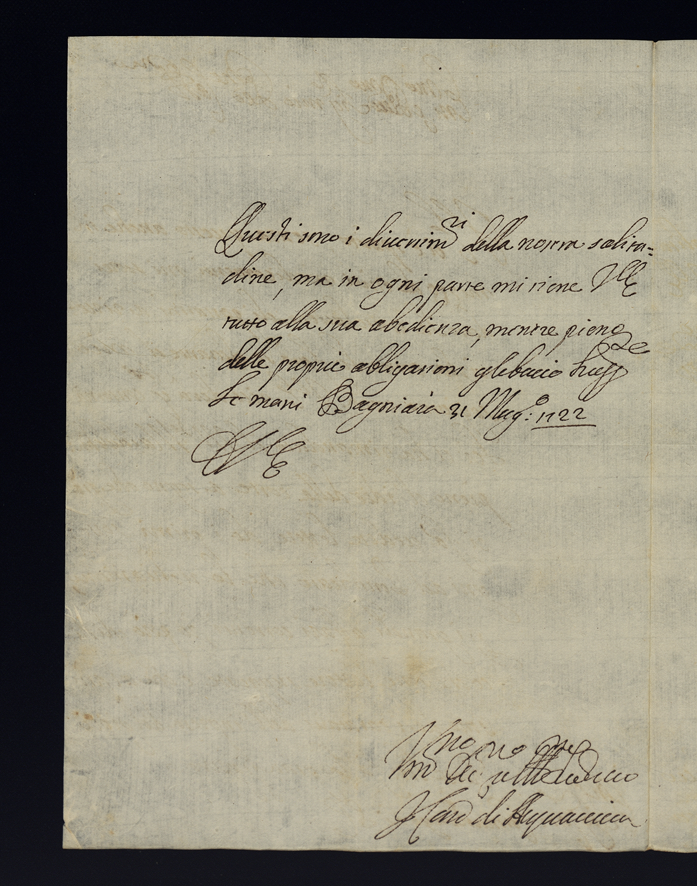 Questi sono i diverim.ti della nostra solitu=
dine, ma in ogni parte mi tiene VE
tutto alla sua obedienza, mentre pieno
delle proprie obligazioni glebacio
le mani Bagniaia 31 Mag:o 1722
VE
Card di Acquaviva